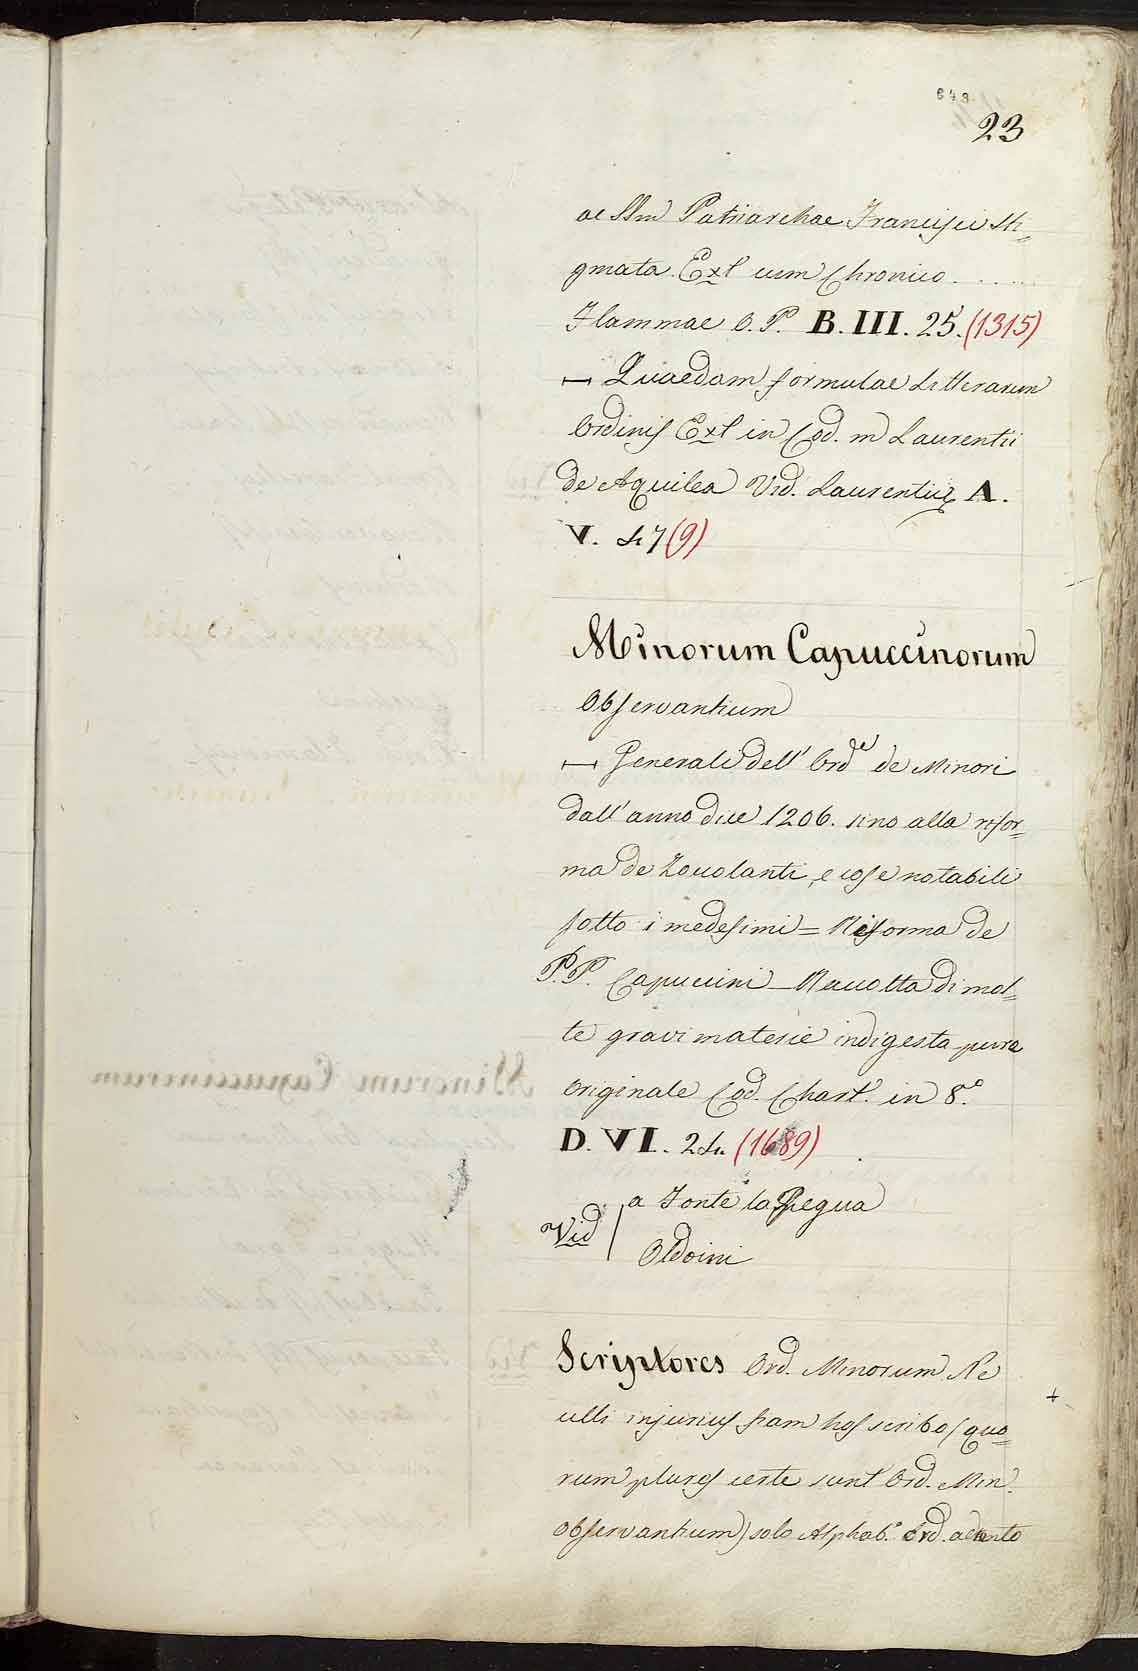 648
23
ac SSmi Patriarchae Francisci sti=
gmata. Ext cum Chronico . . . . .
Flammae O. P. B. III. 25. (1315)
⊢⊣ Quaedam formulae Litterarum
Ordinis Ext in Cod. m Laurentii
de Aquilea Vid. Laurentius A.
V. 47 (9)
Minorum Capuccinorum
Observantium
⊢⊣ Generali dell' Ord.e de Minori
dall' anno due 1206. sino alla rifor=
ma de Zocolanti, e cose notabili
sotto i medesimi = Riforma de
P.P. Capuccini _ Raccolta di mol=
te gravi materie indigesta pura
Originale Cod. Chart. in 8.o
D. VI. 24. (1689)
Vid
a Fonte la Regua
Oldoini
Scriptores Ord. Minorum Ne
ulli injurius fiam hos scribo (quo=
rum plures certe sunt Ord. Min.
observantium) solo Alphab.o Ord. adento